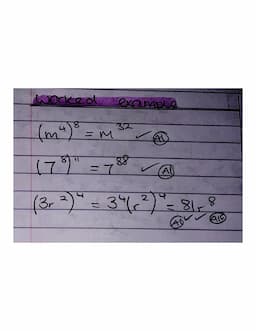 worked example
(m⁴)⁸ = m³² ✓ A1
(7⁸)¹¹ = 7⁸⁸ ✓ A1
(3r²)⁴ = 3⁴(r²)⁴ = 81r⁸
✓ ✓